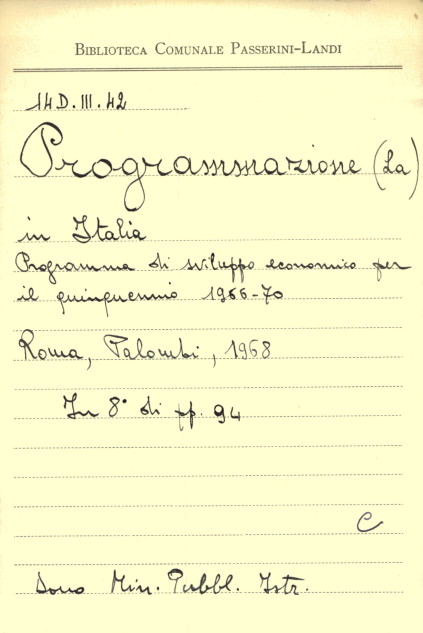 BIBLIOTECA COMUNALE PASSERINI-LANDI
14D.III.42
Programmazione (La)
in Italia
Programma di sviluppo economico per
il quinquennio 1966-70
Roma, Palombi, 1968
In 8° di pp. 94
C
Dono Min. Pubbl. Istr.